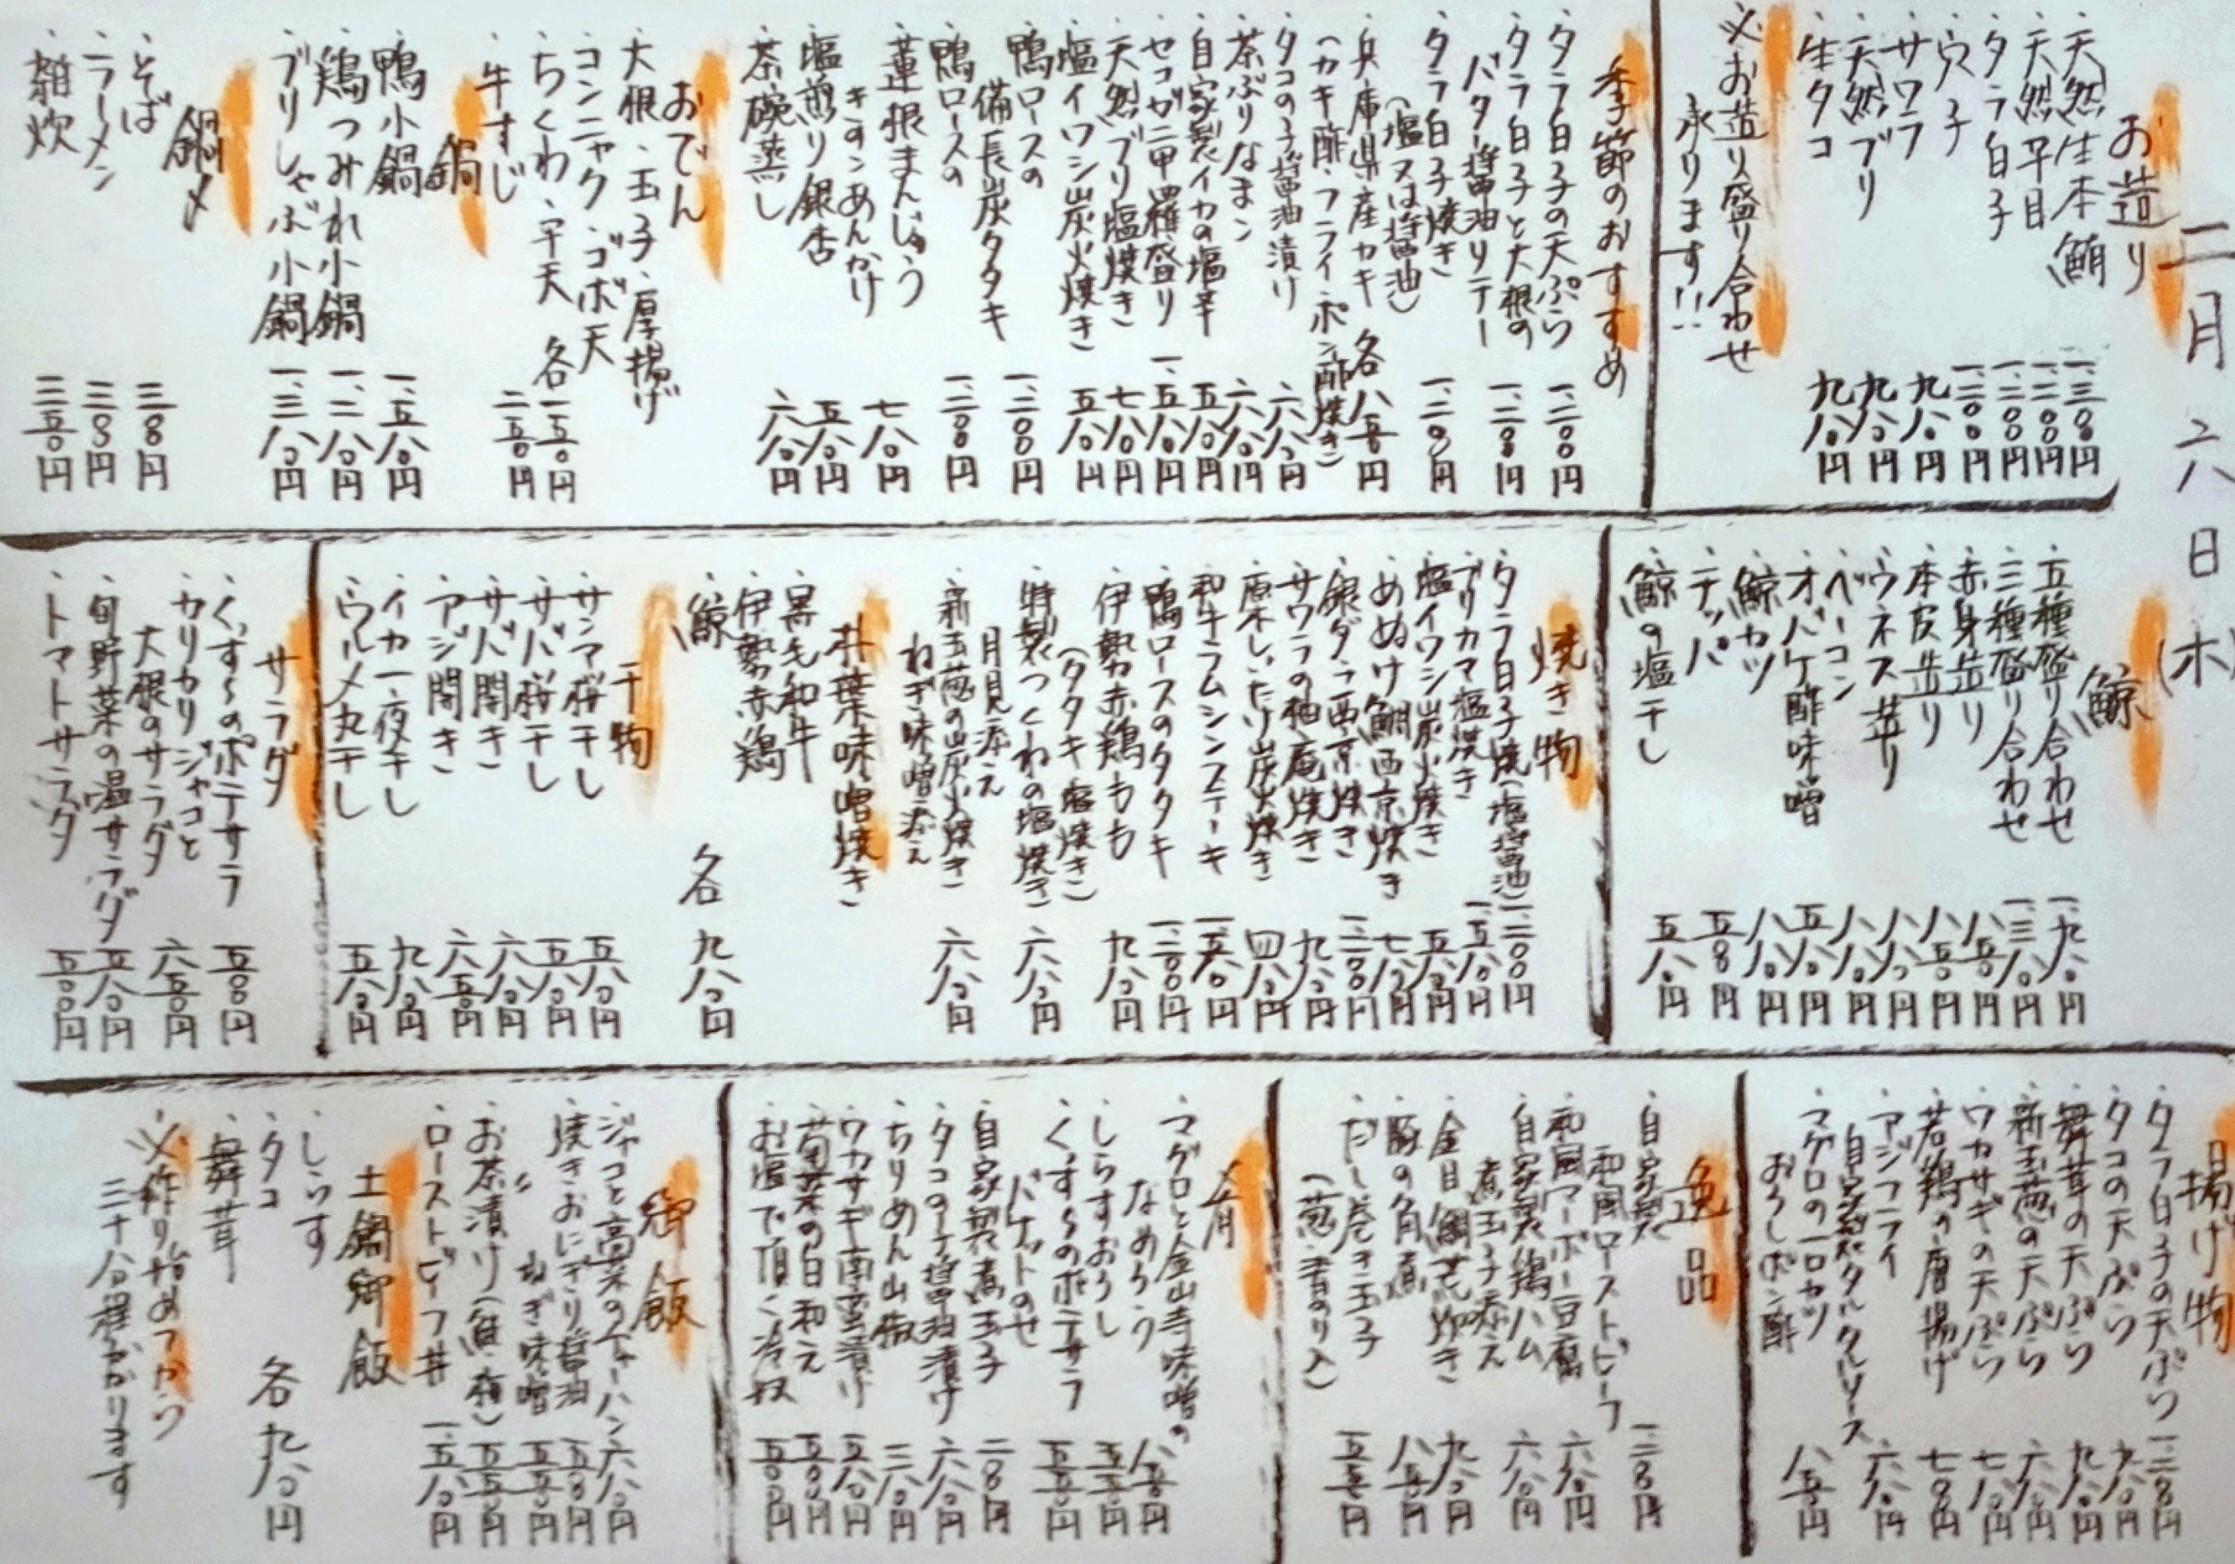 二月六日(木)
お造り
・天然生本鮪 一、三〇〇円
・天然平目 一、二〇〇円
・タラ白子 一、二〇〇円
・穴子 一、二〇〇円
・サワラ 九八〇円
・天然ブリ 九八〇円
・生タコ 九八〇円
※お造り盛り合わせ
承ります!!
季節のおすすめ
・タラ白子の天ぷら 一、二〇〇円
・タラ白子と大根の
バター醤油ソテー 一、二〇〇円
・タラ白子焼き
(塩又は醤油) 一、二〇〇円
・兵庫県産カキ 各八五〇円
(カキ酢・フライ・ポン酢焼き)
・タコの子醤油漬け 六八〇円
・茶ぶりなまこ 六八〇円
・自家製イカの塩辛 五八〇円
・セコガニ甲羅盛り 一、五八〇円
・天然ブリ塩焼き 七八〇円
・塩イワシ炭火焼き 五八〇円
・鴨ロースの
備長炭タタキ 一、二〇〇円
・鴨ロースの 一、二〇〇円
・蓮根まんじゅう
きのこあんかけ 七八〇円
・塩煎り銀杏 五八〇円
・茶碗蒸し 六八〇円
おでん
・大根・玉子・厚揚げ
・コンニャク・ゴボ天
・ちくわ・平天 各一五〇円
・牛すじ 二五〇円
鍋
・鴨小鍋 一、五八〇円
・鶏つみれ小鍋 一、二八〇円
・ブリしゃぶ小鍋 一、三八〇円
鍋〆
・そば 三〇〇円
・ラーメン 三〇〇円
・雑炊 三五〇円
鯨
・五種盛り合わせ 一、九八〇円
・三種盛り合わせ 一、三八〇円
・赤身造り 八五〇円
・本皮造り 八五〇円
・ウネス造り 八八〇円
・ベーコン 八八〇円
・オバケ酢味噌 五八〇円
・鯨カツ 八八〇円
・テッパ 五〇〇円
・鯨の塩干し 五八〇円
焼き物
・タラ白子焼(塩・醤油) 一、二〇〇円
・ブリカマ塩焼き 一、五八〇円
・塩イワシ炭火焼き 五八〇円
・めぬけ鯛西京焼き 七八〇円
・銀ダラ西京焼き 一、二〇〇円
・サワラの柚庵焼き 九八〇円
・原木しいたけ炭火焼き 四八〇円
・和牛ラムシンステーキ 一、五八〇円
・鴨ロースのタタキ 一、二〇〇円
・伊勢赤鶏もも
(タタキ・塩焼き) 九八〇円
・特製つくねの塩焼き
月見添え 六八〇円
・新玉葱の炭火焼き
ねぎ味噌添え 六八〇円
朴葉味噌焼き
・黒毛和牛
・伊勢赤鶏
・鯨 各九八〇円
干物
・サンマ桜干し 五八〇円
・サバ桜干し 五八〇円
・サバ開き 六八〇円
・アジ開き 六五〇円
・イカ一夜干し 九八〇円
・ウルメ丸干し 五八〇円
サラダ
・くす〜のポテサラ 五〇〇円
・カリカリジャコと
大根のサラダ 六五〇円
・旬野菜の温サラダ 五八〇円
・トマトサラダ 五〇〇円
揚げ物
・タラ白子の天ぷら 一、二〇〇円
・タコの天ぷら 九八〇円
・舞茸の天ぷら 九八〇円
・新玉葱の天ぷら 六八〇円
・ワカサギの天ぷら 七八〇円
・若鶏の唐揚げ 七〇〇円
・アジフライ
自家製タルタルソース 六八〇円
・マグロの一口カツ
おろしポン酢 八五〇円
逸品
・自家製
和風ローストビーフ 一、二〇〇円
・和風マーボー豆腐 六八〇円
・自家製鶏ハム
煮玉子添え 六八〇円
・金目鯛荒炊き 九八〇円
・豚の角煮 八五〇円
・だし巻き玉子
(葱・青のり入) 五五〇円
・マグロと金山寺味噌の
なめろう 八五〇円
・しらすおろし 五五〇円
・くす〜のポテサラ
バケットのせ 五五〇円
・自家製煮玉子 二〇〇円
・タコの子醤油漬け 六八〇円
・ちりめん山椒 三八〇円
・ワカサギ南蛮漬け 五八〇円
・菊菜の白和え 五〇〇円
・お塩で頂く冷奴 五〇〇円
御飯
・ジャコと高菜のチャーハン 六八〇円
・焼きおにぎり醤油 五〇〇円
・〃 ねぎ味噌 五五〇円
・お茶漬け(鮭・梅) 五五〇円
・ローストビーフ丼 一、五八〇円
土鍋御飯
・しらす
・タコ
・舞茸 各九八〇円
※作り始めてから
三十分程かかります